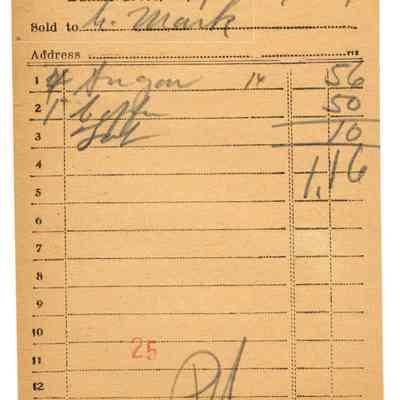 Sold to G. Mark
Address
1 4 Sugar 14 56
2 1 Coffee 50
3 10
4 1.16
5
6
7
8
9
10
11 25
12 Pd